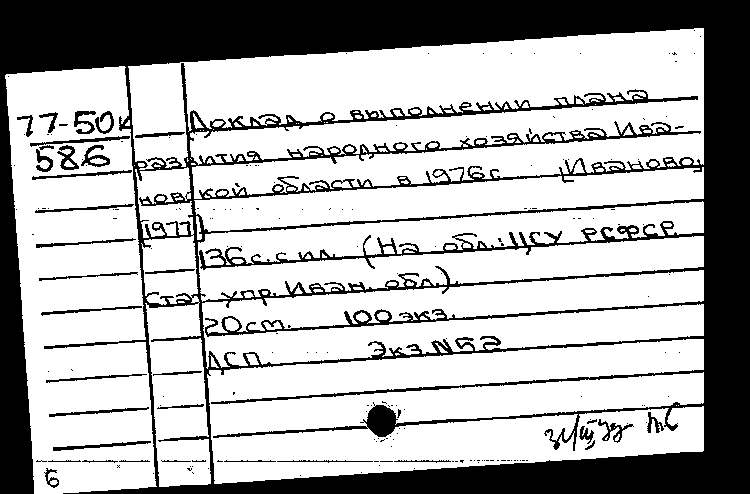 77-50к
586
Доклад о выполнении плана
развития народного хозяйства Ива-
новской области в 1976 г. [Иваново,
[1977].
136 с. с ил. (На обл.: ЦСУ РСФСР.
Стат. упр. Иван. обл.).
20 см. 100 экз.
ДСП. Экз. N 52
6